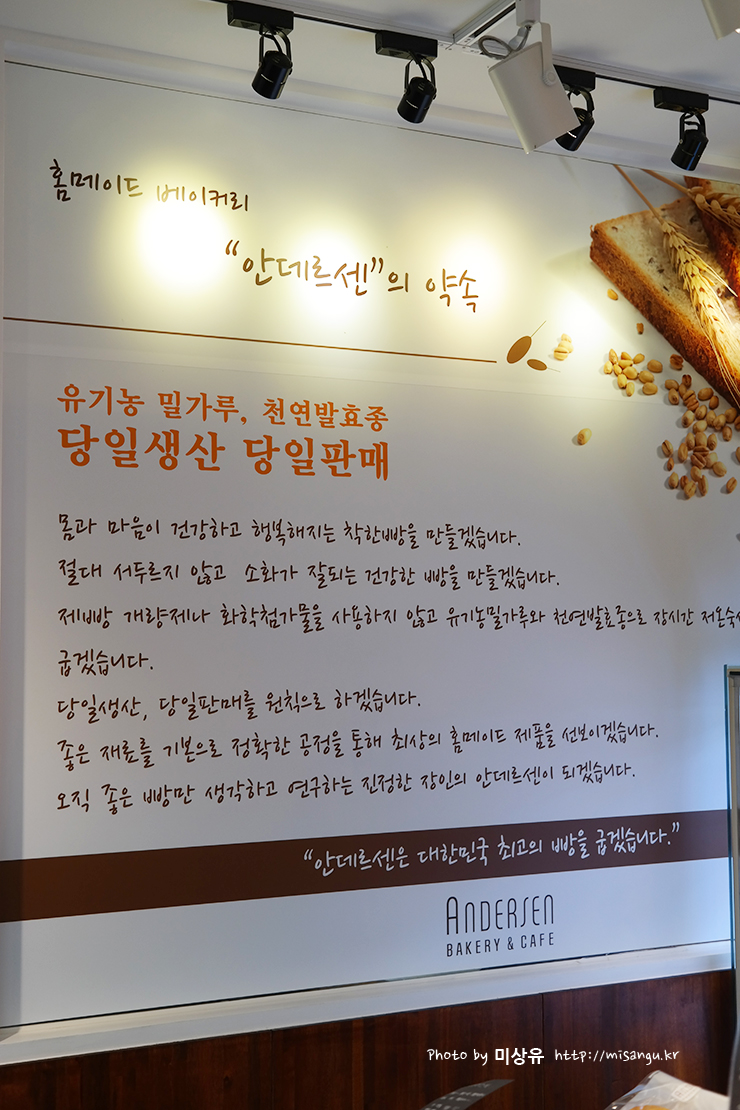 홈메이드 베이커리
“안데르센”의 약속
유기농 밀가루, 천연발효종
당일생산 당일판매
몸과 마음이 건강하고 행복해지는 착한빵을 만들겠습니다.
절대 서두르지 않고 소화가 잘되는 건강한 빵을 만들겠습니다.
제빵 개량제나 화학첨가물을 사용하지 않고 유기농밀가루와 천연발효종으로 장시간 저온숙
굽겠습니다.
당일생산, 당일판매를 원칙으로 하겠습니다.
좋은 재료를 기본으로 정확한 공정을 통해 최상의 홈메이드 제품을 선보이겠습니다.
오직 좋은 빵만 생각하고 연구하는 진정한 장인의 안데르센이 되겠습니다.
“안데르센은 대한민국 최고의 빵을 굽겠습니다.”
ANDERSEN
BAKERY & CAFE
Photo by 미상유 http://misangu.kr